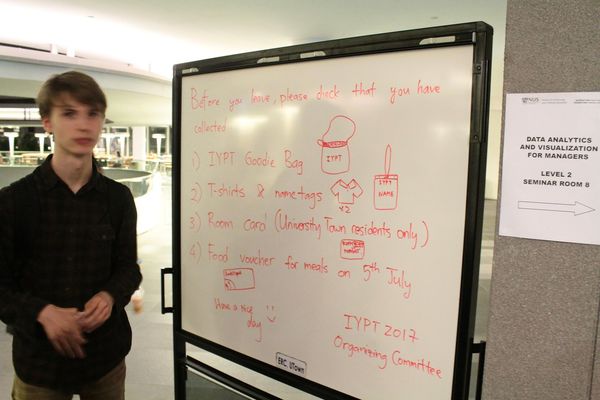 Before you leave, please check that you have
collected
1) IYPT Goodie Bag
IYPT
2) T-shirts & nametags
x2
IYPT
NAME
3) Room card (University Town residents only)
4) Food voucher for meals on 5th July
Have a nice
day
IYPT 2017
Organizing Committee
ERC, UTOWN
NUS
DATA ANALYTICS
AND VISUALIZATION
FOR MANAGERS
LEVEL 2
SEMINAR ROOM 8